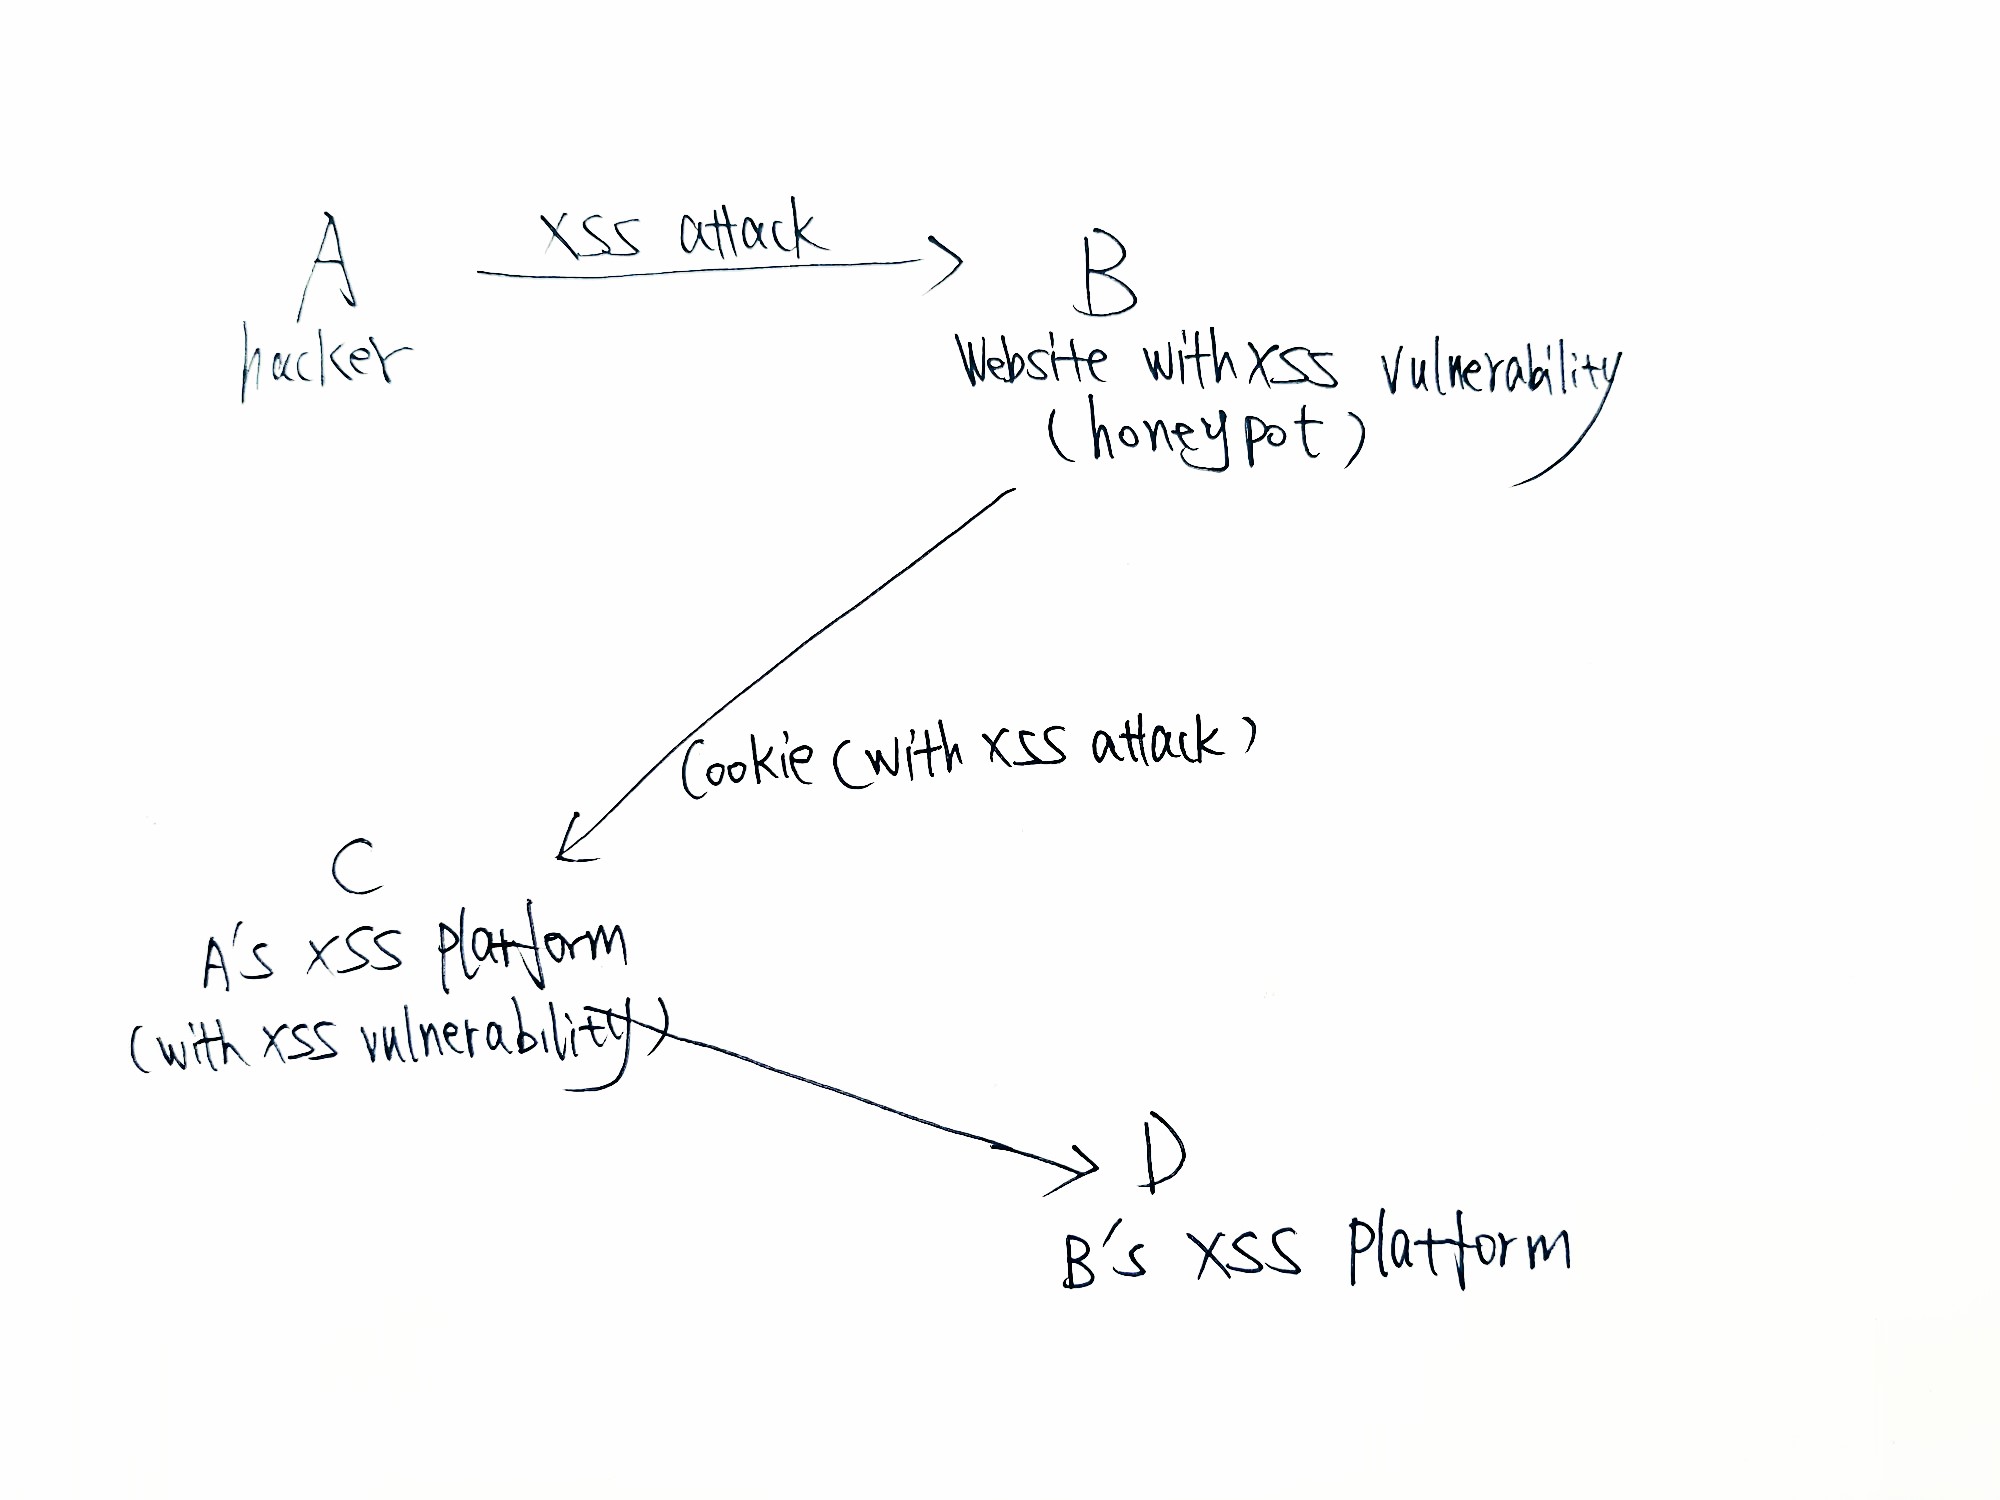 A
XSS attack
B
hacker
Website with XSS vulnerability
(honeypot)
Cookie (with XSS attack)
C
A's XSS platform
(with XSS vulnerability)
D
B's XSS platform